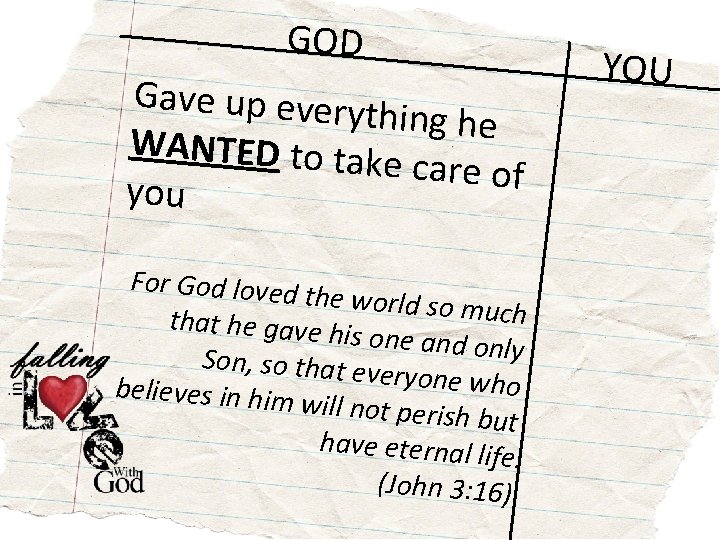 GOD
YOU
Gave up everything he
WANTED to take care of
you
For God loved the world so much
that he gave his one and only
Son, so that everyone who
believes in him will not perish but
have eternal life.
(John 3:16)
falling
in
LOVE
With
God